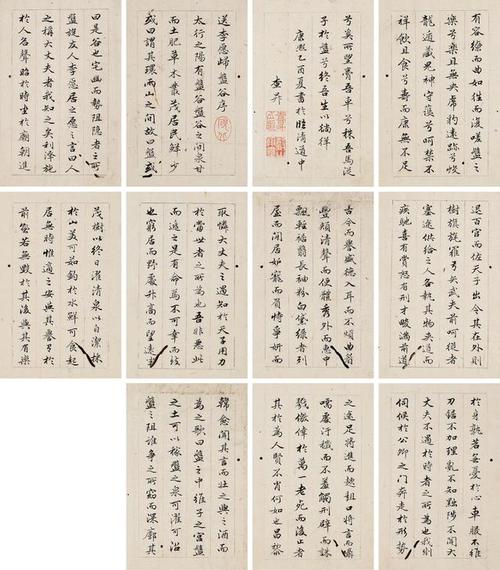 送李愿歸盤谷序
太行之陽有盤谷盤谷之間泉甘
而土肥草木叢茂居民鮮少
或曰謂其環兩山之間故曰盤或
曰是谷也宅幽而勢阻隱者之所
盤旋友人李愿居之愿之言曰人
之稱大丈夫者我知之矣利澤施
於人名聲昭於時坐於廟朝進
退百官而佐天子出令其在外則
樹旗旄羅弓矢武夫前呵從者
塞途供給之人各執其物夾道而
疾馳喜有賞怒有刑才畯滿前道
古今而譽盛德入耳而不煩曲眉
豐頰清聲而便體秀外而惠中
飄輕裾翳長袖粉白黛綠者列
屋而閒居妒寵而負恃爭妍而
取憐大丈夫之遇知於天子用力
於當世者之所為也吾非惡此
而逃之是有命焉不可幸而致
也窮居而野處升高而望遠坐
茂樹以終日濯清泉以自潔採
於山美可茹釣於水鮮可食起
居無時惟適之安與其譽於
前孰若無毀於其後與其有樂
於身孰若無憂於心車服不維
刀鋸不加理亂不知黜陟不聞大
丈夫不遇於時者之所為也我則
伺候於公卿之門奔走於形勢
之途足將進而趑趄口將言而囁
嚅處汙穢而不羞觸刑辟而誅
戮僥倖於萬一老死而後止者
其於為人賢不肖何如也昌黎
韓愈聞其言而壯之與之酒而
為之歌曰盤之中維子之宮盤
之土可以稼盤之泉可濯可沿
盤之阻誰爭之所窈而深廓其
有容繚而曲如往而復嗟盤之
樂兮樂且無央虎豹遠跡兮蛟
龍遁藏鬼神守護兮呵禁不
祥飲且食兮壽而康無不足
兮奚所望膏吾車兮秣吾馬從
子於盤兮終吾生以徜徉
康熙乙酉夏書於臨清道中
查昇